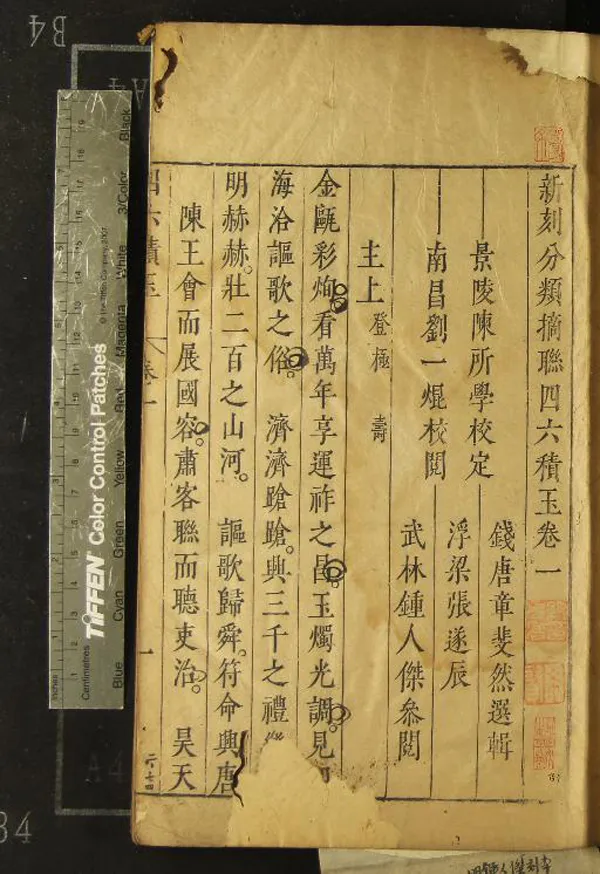 新刻分類摘聯四六積玉卷一
錢唐章斐然選輯
景陵陳所學校定
浮梁張遂辰
南昌劉一焜校閱
武林鍾人傑叅閱
主上 登極 壽
金甌彩絢看萬年享運祚之昌玉燭光調見
海洽謳歌之俗 濟濟蹌蹌與三千之禮
明赫赫壯二百之山河 謳歌歸舜符命興唐
陳王會而展國容肅客聯而聽吏治 昊天
卷一
一
TIFFEN Color Control Patches
© The Tiffen Company, 2007
Inches
Centimetres
Blue Cyan Green Yellow Red Magenta White 3/Color Black
B4
A4
A4
B4